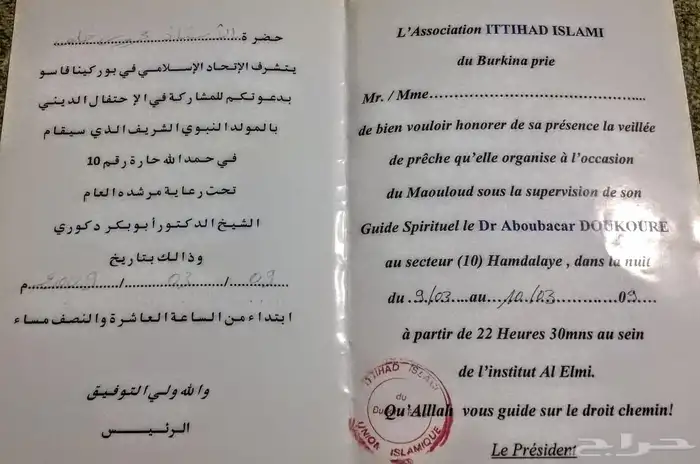 حضرة
يتشرف الإتحاد الإسلامي في بوركينا فاسو
بدعوتكم للمشاركة في الإحتفال الديني
بالمولد النبوي الشريف الذي سيقام
في حمد الله حارة رقم 10
تحت رعاية مرشده العام
الشيخ الدكتور أبوبكر دكوري
وذالك بتاريخ
09/03/2009م
ابتداء من الساعة العاشرة والنصف مساء
والله ولي التوفيق
الرئيس
L'Association ITTIHAD ISLAMI
du Burkina prie
Mr. / Mme
de bien vouloir honorer de sa présence la veillée
de prêche qu'elle organise à l'occasion
du Maouloud sous la supervision de son
Guide Spirituel le Dr Aboubacar DOUKOURE
au secteur (10) Hamdalaye , dans la nuit
du 9/03 au 10/03 09
à partir de 22 Heures 30mns au sein
de l'institut Al Elmi.
Qu'Alllah vous guide sur le droit chemin!
Le Président
ITTIHAD ISLAMI
du
UNION ISLAMIQUE
حراج